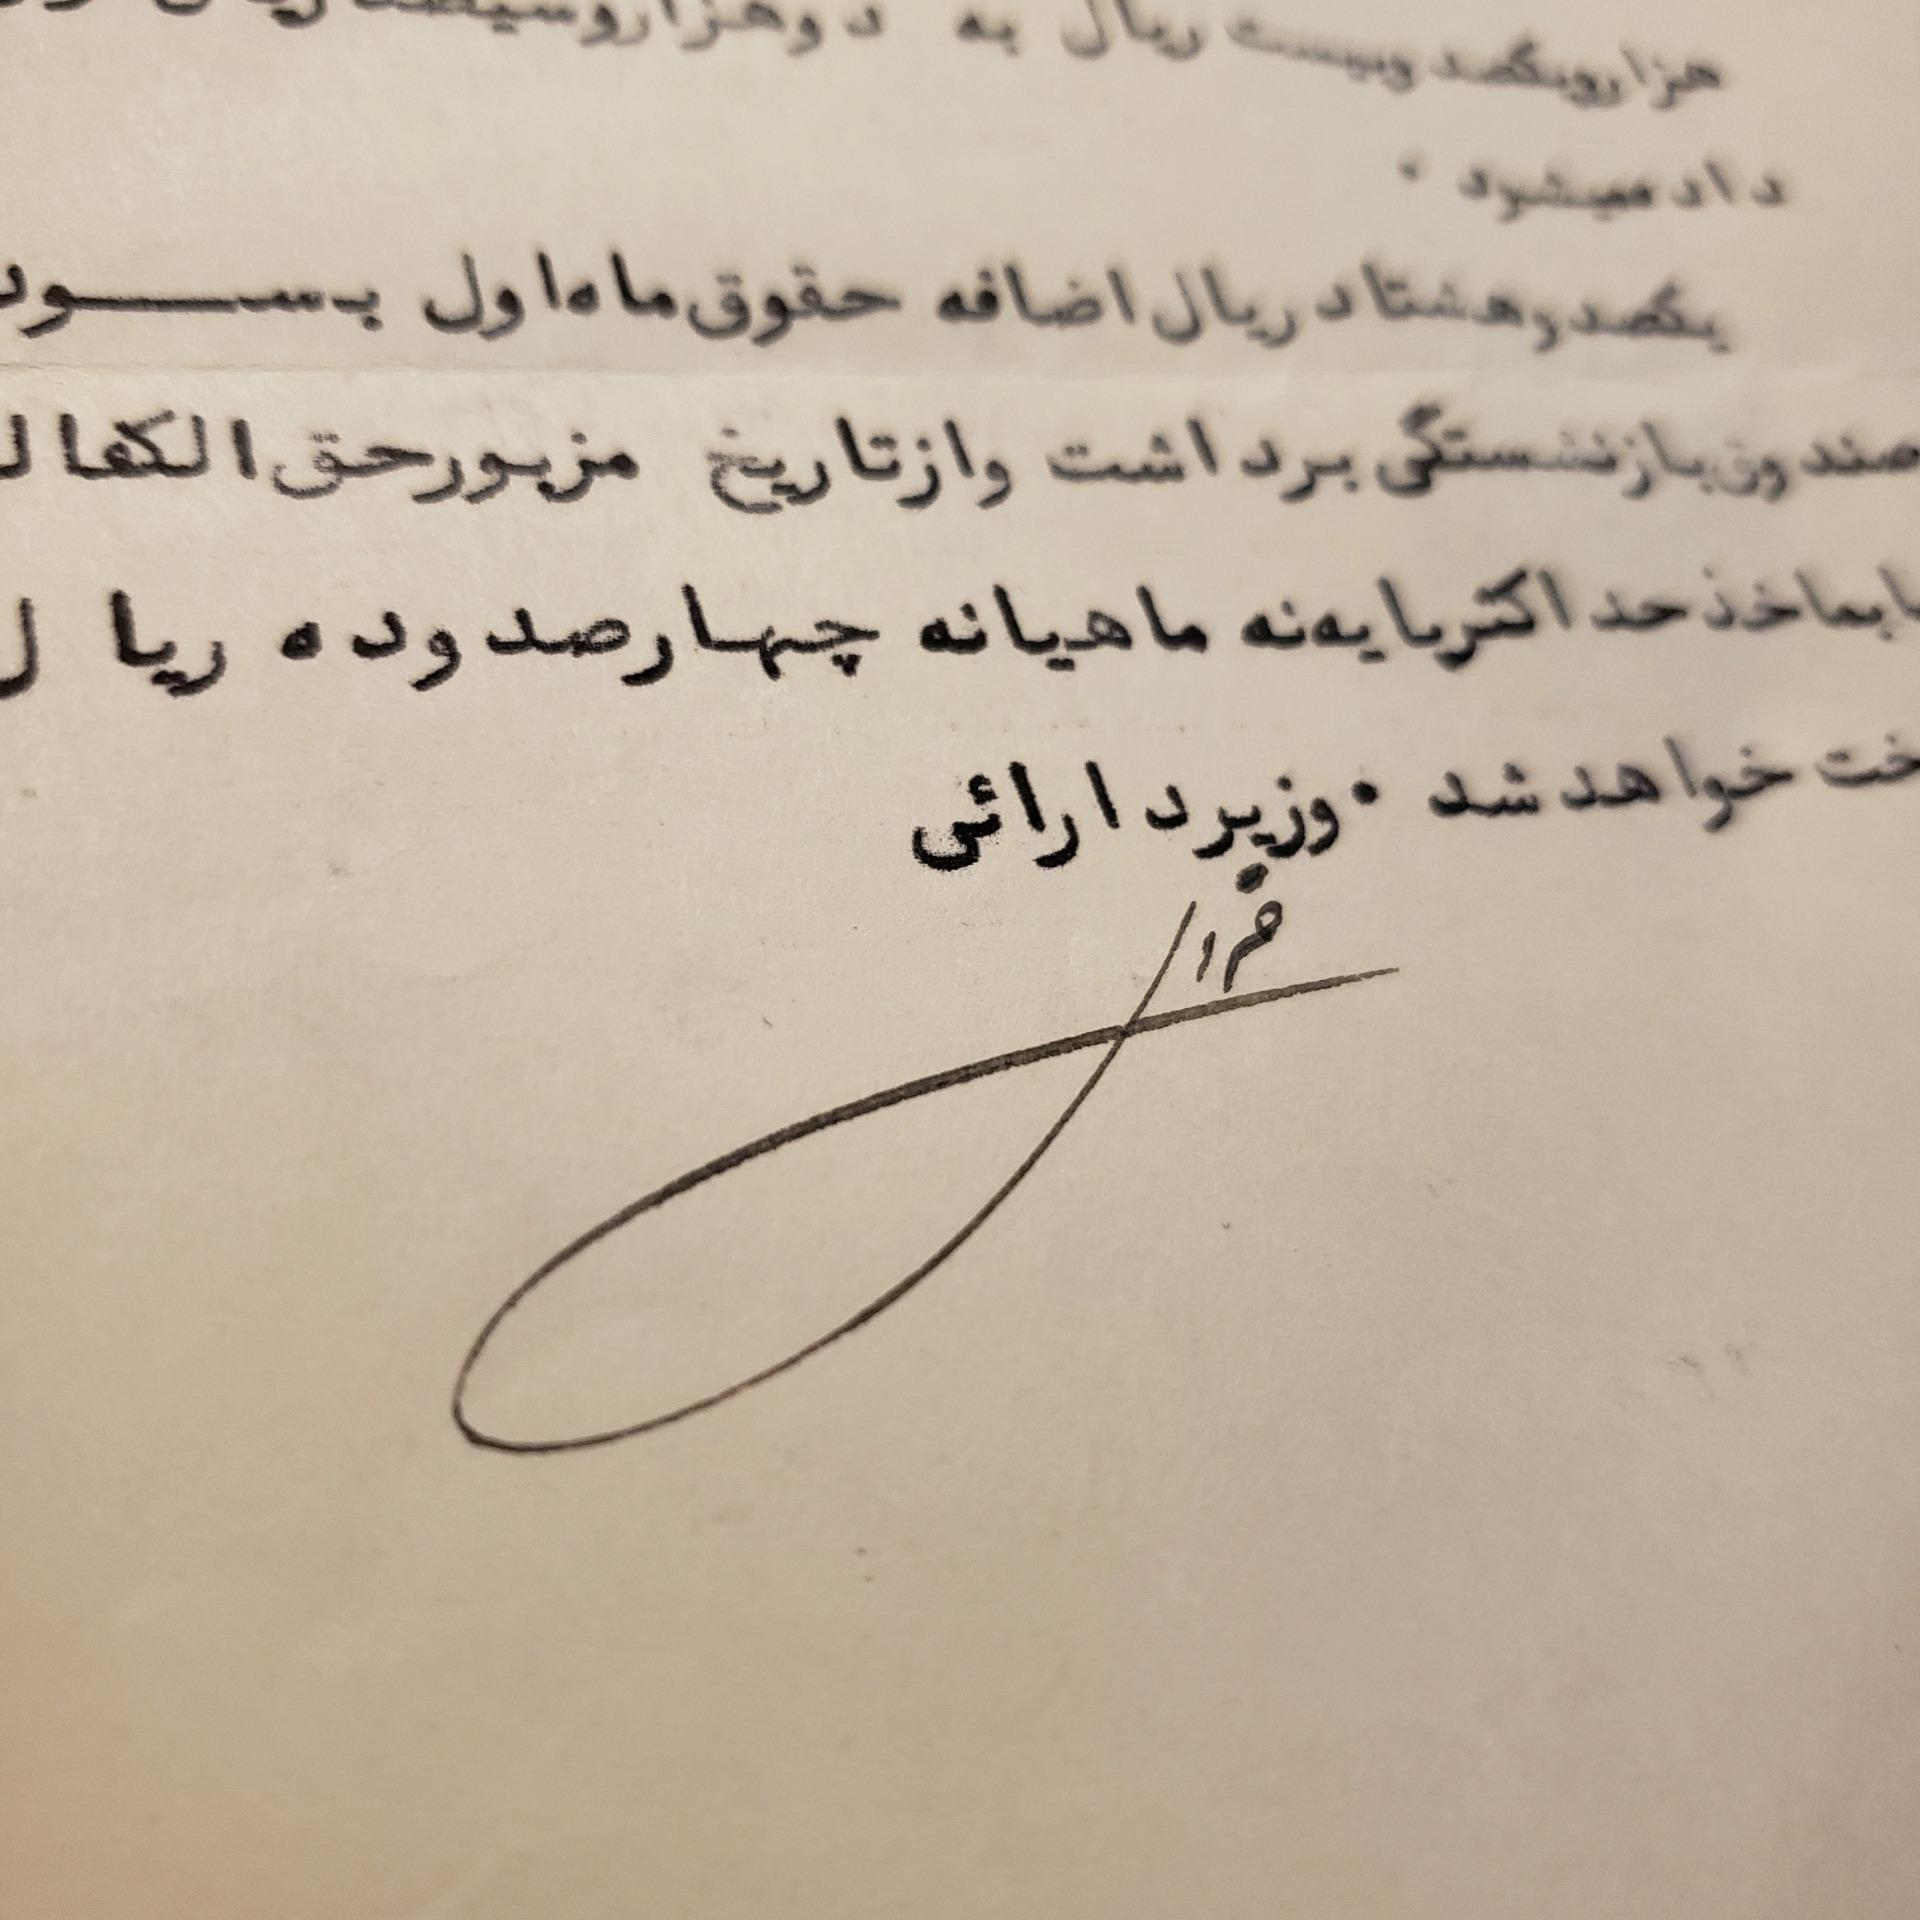 هزار ویکصد وبیست ریال به دوهزاروسیصد ریال
داده میشود .
یکصد و هشتاد ریال اضافه حقوق ماه اول بسود
صندوق بازنشستگی برداشت وازتاریخ مزبور حق الکفال
بماخذ حد اکثر پایه نه ماهیانه چهارصد وده ریال
خت خواهد شد . وزیر دارائی